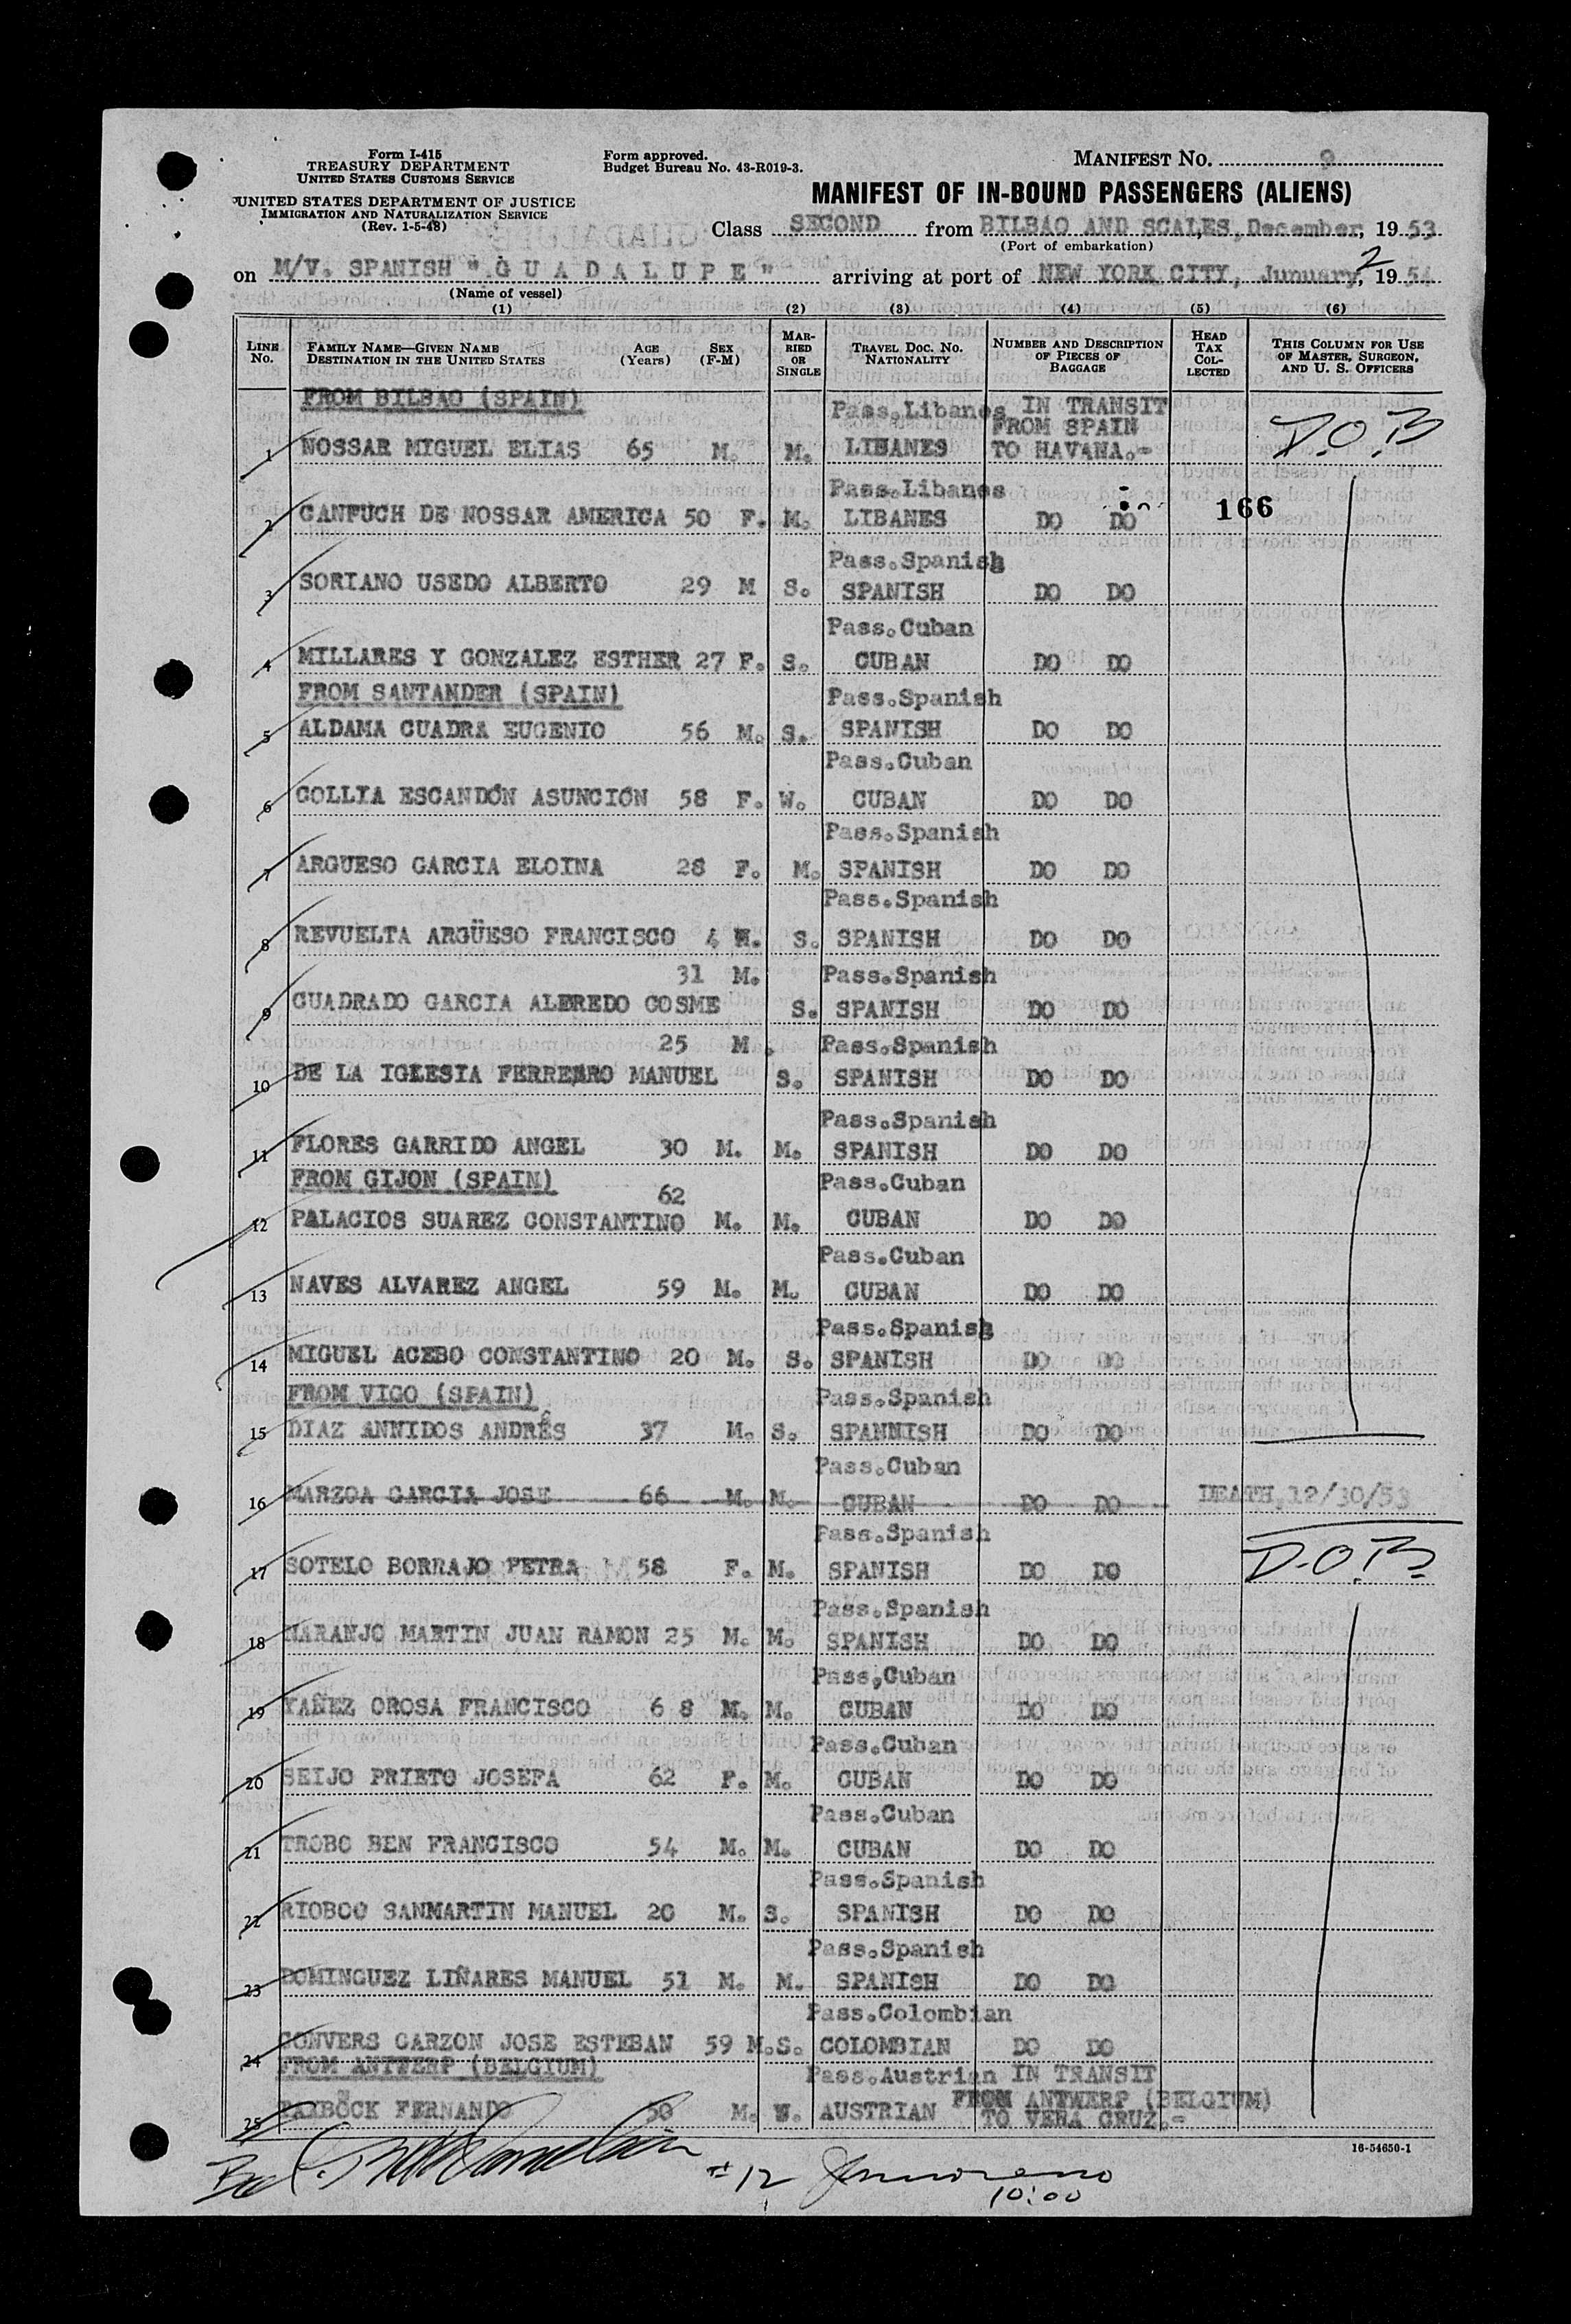 Form I-415
TREASURY DEPARTMENT
UNITED STATES CUSTOMS SERVICE
UNITED STATES DEPARTMENT OF JUSTICE
IMMIGRATION AND NATURALIZATION SERVICE
(Rev. 1-5-48)
Form approved.
Budget Bureau No. 43-R019-3.
MANIFEST NO. 9
MANIFEST OF IN-BOUND PASSENGERS (ALIENS)
Class SECOND from BILBAO AND SCALES, December, 19 53
(Port of embarkation)
on M/V. SPANISH "GUADALUPE" arriving at port of NEW YORK CITY, Junuary 2, 19 54
(Name of vessel)
(1) (2) (3) (4) (5) (6)
LINE No. FAMILY NAME—GIVEN NAME DESTINATION IN THE UNITED STATES AGE (Years) SEX (F-M) MARRIED OR SINGLE TRAVEL DOC. NO. NATIONALITY NUMBER AND DESCRIPTION OF PIECES OF BAGGAGE HEAD TAX COLLECTED THIS COLUMN FOR USE OF MASTER, SURGEON, AND U. S. OFFICERS
FROM BILBAO (SPAIN)
Pass.Libanes IN TRANSIT FROM SPAIN
1 NOSSAR MIGUEL ELIAS 65 M. M. LIBANES TO HAVANA.- D.O.B
Pass.Libanes
2 CANFUCH DE NOSSAR AMERICA 50 F. M. LIBANES DO DO 166
Pass.Spanish
3 SORIANO USEDO ALBERTO 29 M S. SPANISH DO DO
Pass.Cuban
4 MILLARES Y GONZALEZ ESTHER 27 F. S. CUBAN DO DO
FROM SANTANDER (SPAIN) Pass.Spanish
5 ALDAMA CUADRA EUGENIO 56 M. S. SPANISH DO DO
Pass.Cuban
6 COLLIA ESCANDÓN ASUNCIÓN 58 F. W. CUBAN DO DO
Pass.Spanish
7 ARGUESO GARCIA ELOINA 28 F. M. SPANISH DO DO
Pass.Spanish
8 REVUELTA ARGÜESO FRANCISCO 4 M. S. SPANISH DO DO
31 M. Pass.Spanish
9 CUADRADO GARCIA ALFREDO COSME S. SPANISH DO DO
25 M. Pass.Spanish
10 DE LA IGLESIA FERRERO MANUEL S. SPANISH DO DO
Pass.Spanish
11 FLORES GARRIDO ANGEL 30 M. M. SPANISH DO DO
FROM GIJON (SPAIN) 62 Pass.Cuban
12 PALACIOS SUAREZ CONSTANTINO M. M. CUBAN DO DO
Pass.Cuban
13 NAVES ALVAREZ ANGEL 59 M. M. CUBAN DO DO
Pass.Spanish
14 MIGUEL ACEBO CONSTANTINO 20 M. S. SPANISH DO DO
FROM VIGO (SPAIN) Pass.Spanish
15 DIAZ ANNIDOS ANDRÊS 37 M. S. SPANNISH DO DO
Pass.Cuban
16 MARZOA GARCIA JOSE 66 M. M. CUBAN DO DO DEATH,12/30/53
Pass.Spanish
17 SOTELO BORRAJO PETRA 58 F. M. SPANISH DO DO D.O.B
Pass.Spanish
18 NARANJO MARTIN JUAN RAMON 25 M. M. SPANISH DO DO
Pass,Cuban
19 YAÑEZ OROSA FRANCISCO 6 8 M. M. CUBAN DO DO
Pass.Cuban
20 SEIJO PRIETO JOSEFA 62 F. M. CUBAN DO DO
Pass.Cuban
21 TROBO BEN FRANCISCO 54 M. M. CUBAN DO DO
Pass.Spanish
22 RIOBOO SANMARTIN MANUEL 20 M. S. SPANISH DO DO
Pass.Spanish
23 DOMINGUEZ LIÑARES MANUEL 51 M. M. SPANISH DO DO
Pass.Colombian
24 CONVERS GARZON JOSE ESTEBAN 59 M.S. COLOMBIAN DO DO
FROM ANTWERP (BELGIUM) Pass.Austrian IN TRANSIT
FROM ANTWERP (BELGIUM)
25 FERNANDO 50 M. W. AUSTRIAN TO VERA CRUZ.-
16-54650-1
#12
10:00